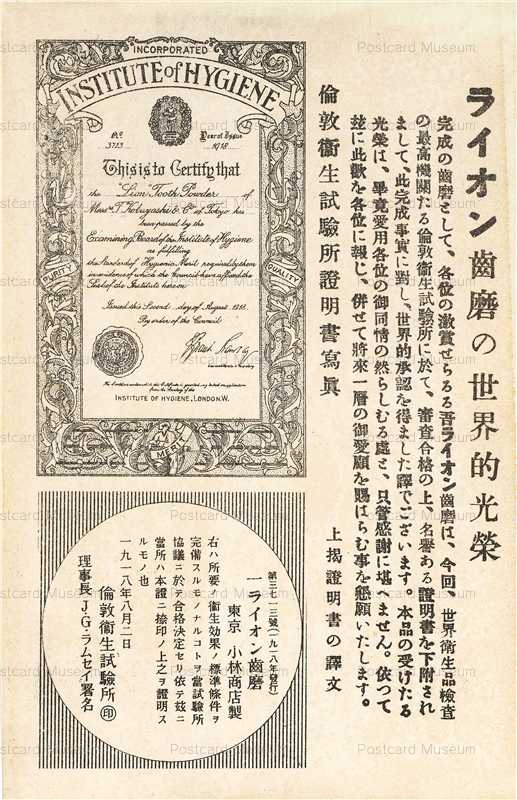 ライオン齒磨の世界的光榮
完成の齒磨として、各位の激賞せらるる吾ライオン齒磨は、今回、世界衛生品檢査
の最高機關たる倫敦衛生試驗所に於て、審査合格の上、名譽ある證明書を下附され
まして、此完成事實に對し、世界的承認を得ました譯でございます。本品の受けたる
光榮は、畢竟愛用各位の御同情の然らしむる處と、只管感謝に堪へません。依つて
玆に此歡を各位に報じ、併せて將來一層の御愛顧を賜はらむ事を懇願いたします。
倫敦衞生試驗所證明書寫眞
上揭證明書の譯文
INCORPORATED
INSTITUTE of HYGIENE
No. 3713
Year of Issue 1918
This is to Certify that
the "Lion" Tooth Powder of
Messrs T. Kobayashi & Co. of Tokyo has
been passed by the
Examining Board of the Institute of Hygiene
as fulfilling
the Standard of Hygienic Merit required by them
in evidence of which the Council have affixed the
Seal of the Institute hereon
Issued this Second day of August 1918.
By order of the Council
PURITY
QUALITY
INSTITUTE OF HYGIENE, LONDON.W.
MERIT
第三七一三號(一九一八年發行)
一ライオン齒磨
東京 小林商店製
右ハ所要ノ衞生効果ノ標準條件ヲ
完備スルモノナルコトヲ當試驗所
協議ニ於テ合格決定セリ依テ玆ニ
當所ハ本證ニ捺印ノ上之ヲ證明ス
ルモノ也
一九一八年八月二日
倫敦衞生試驗所 印
理事長J・G・ラムセイ署名
Postcard Museum